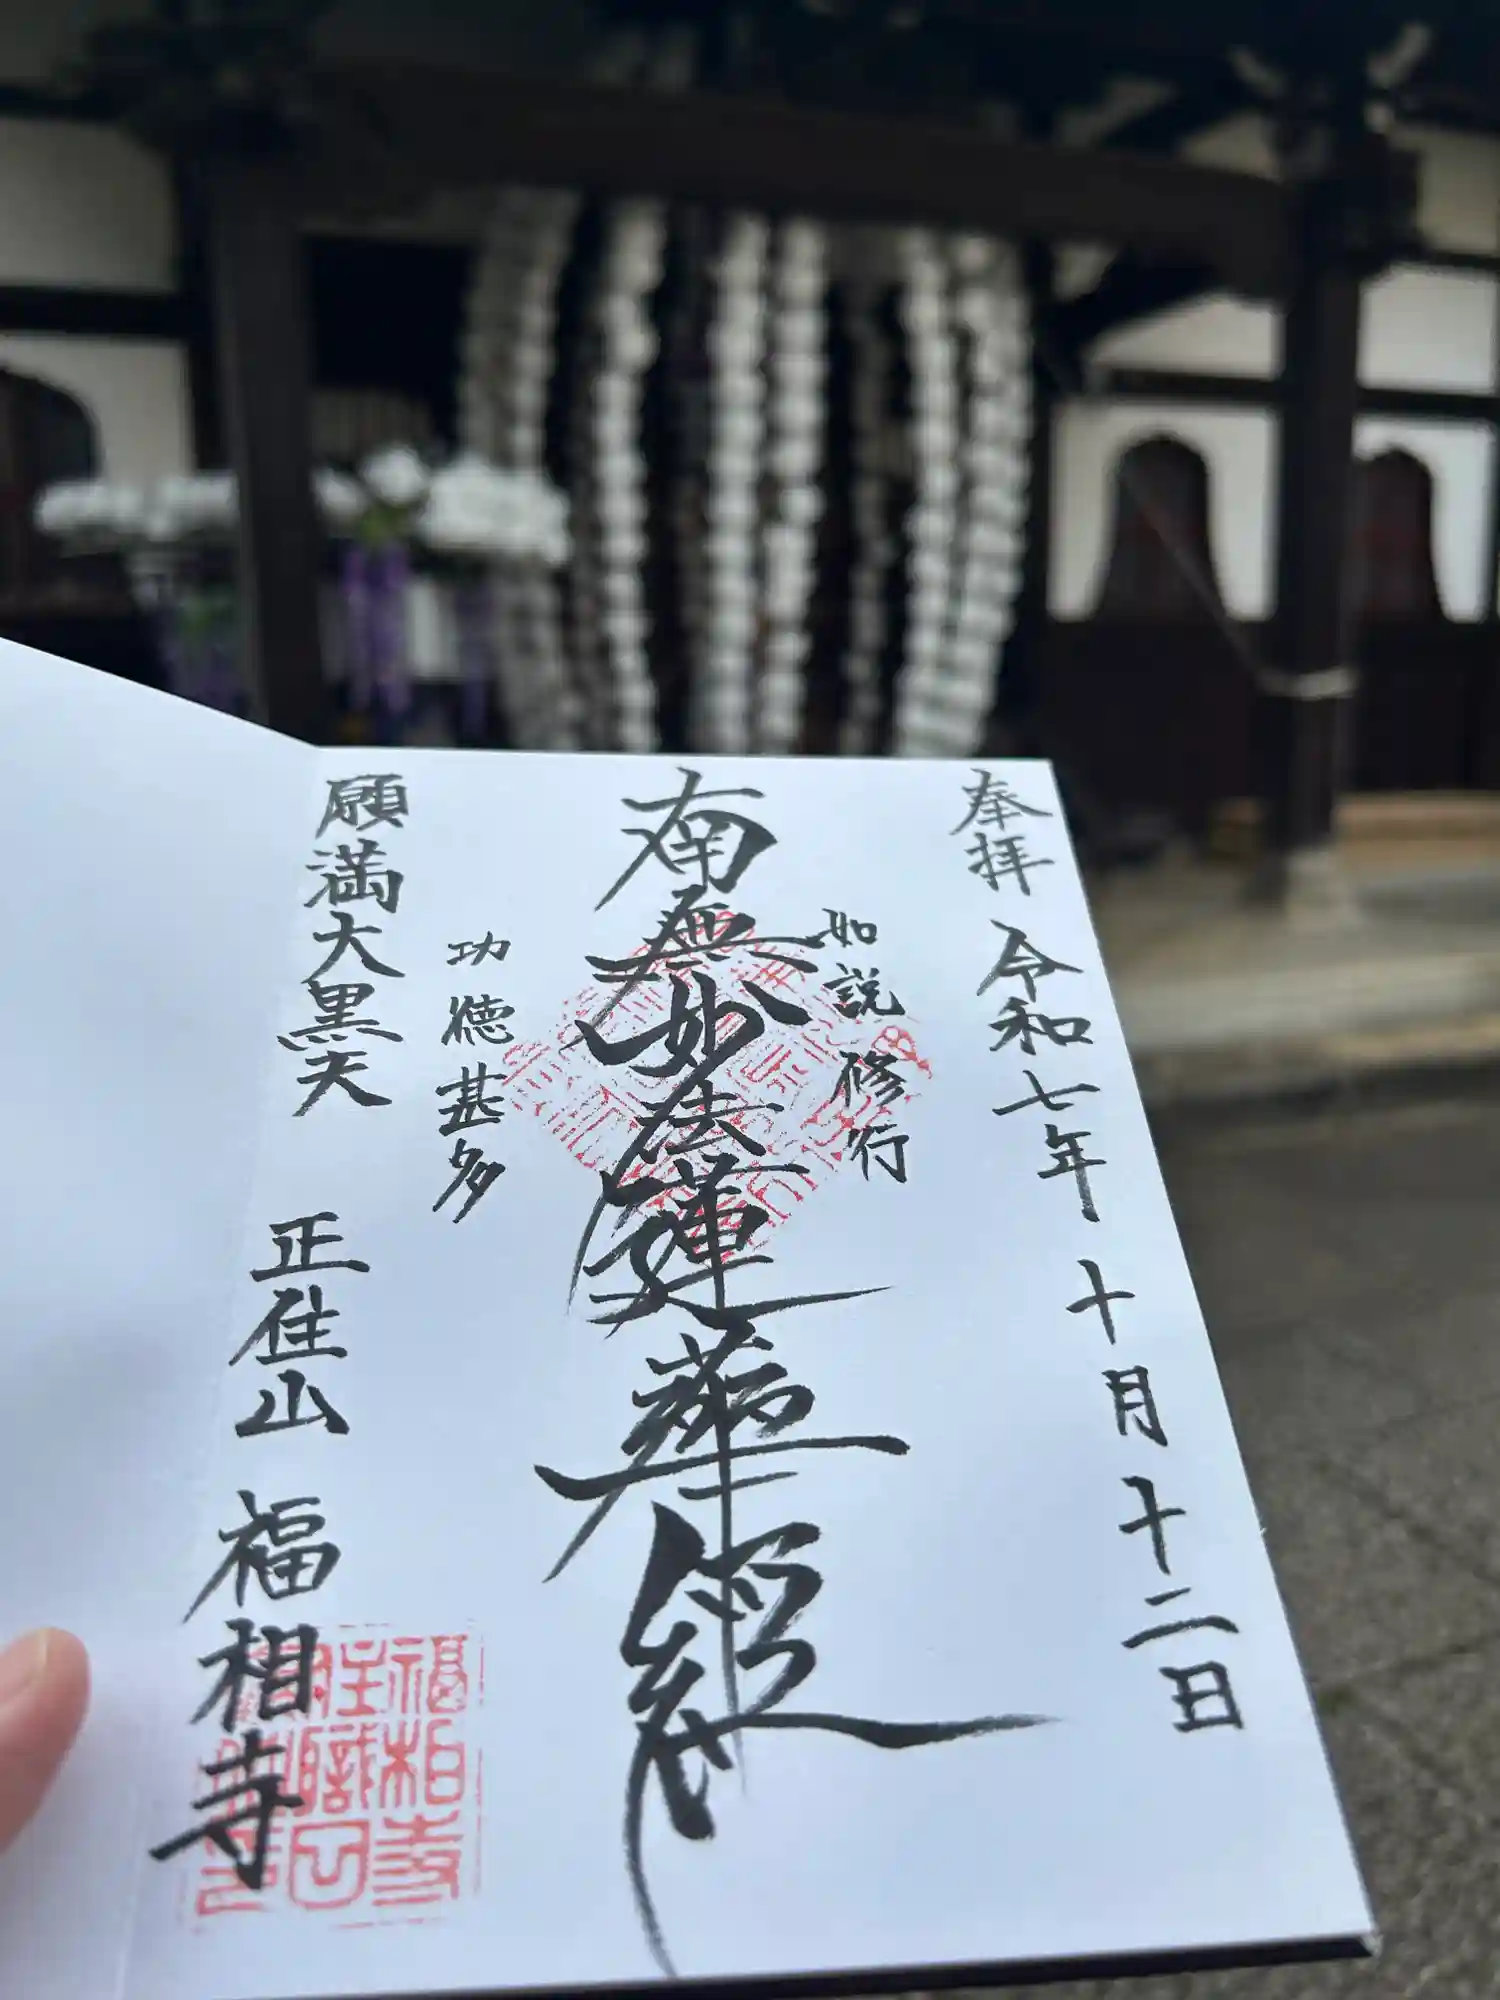 奉拝 令和七年十月十二日
如説修行
南無妙法蓮華経
功徳甚多
願満大黒天 正住山 福相寺
福相寺